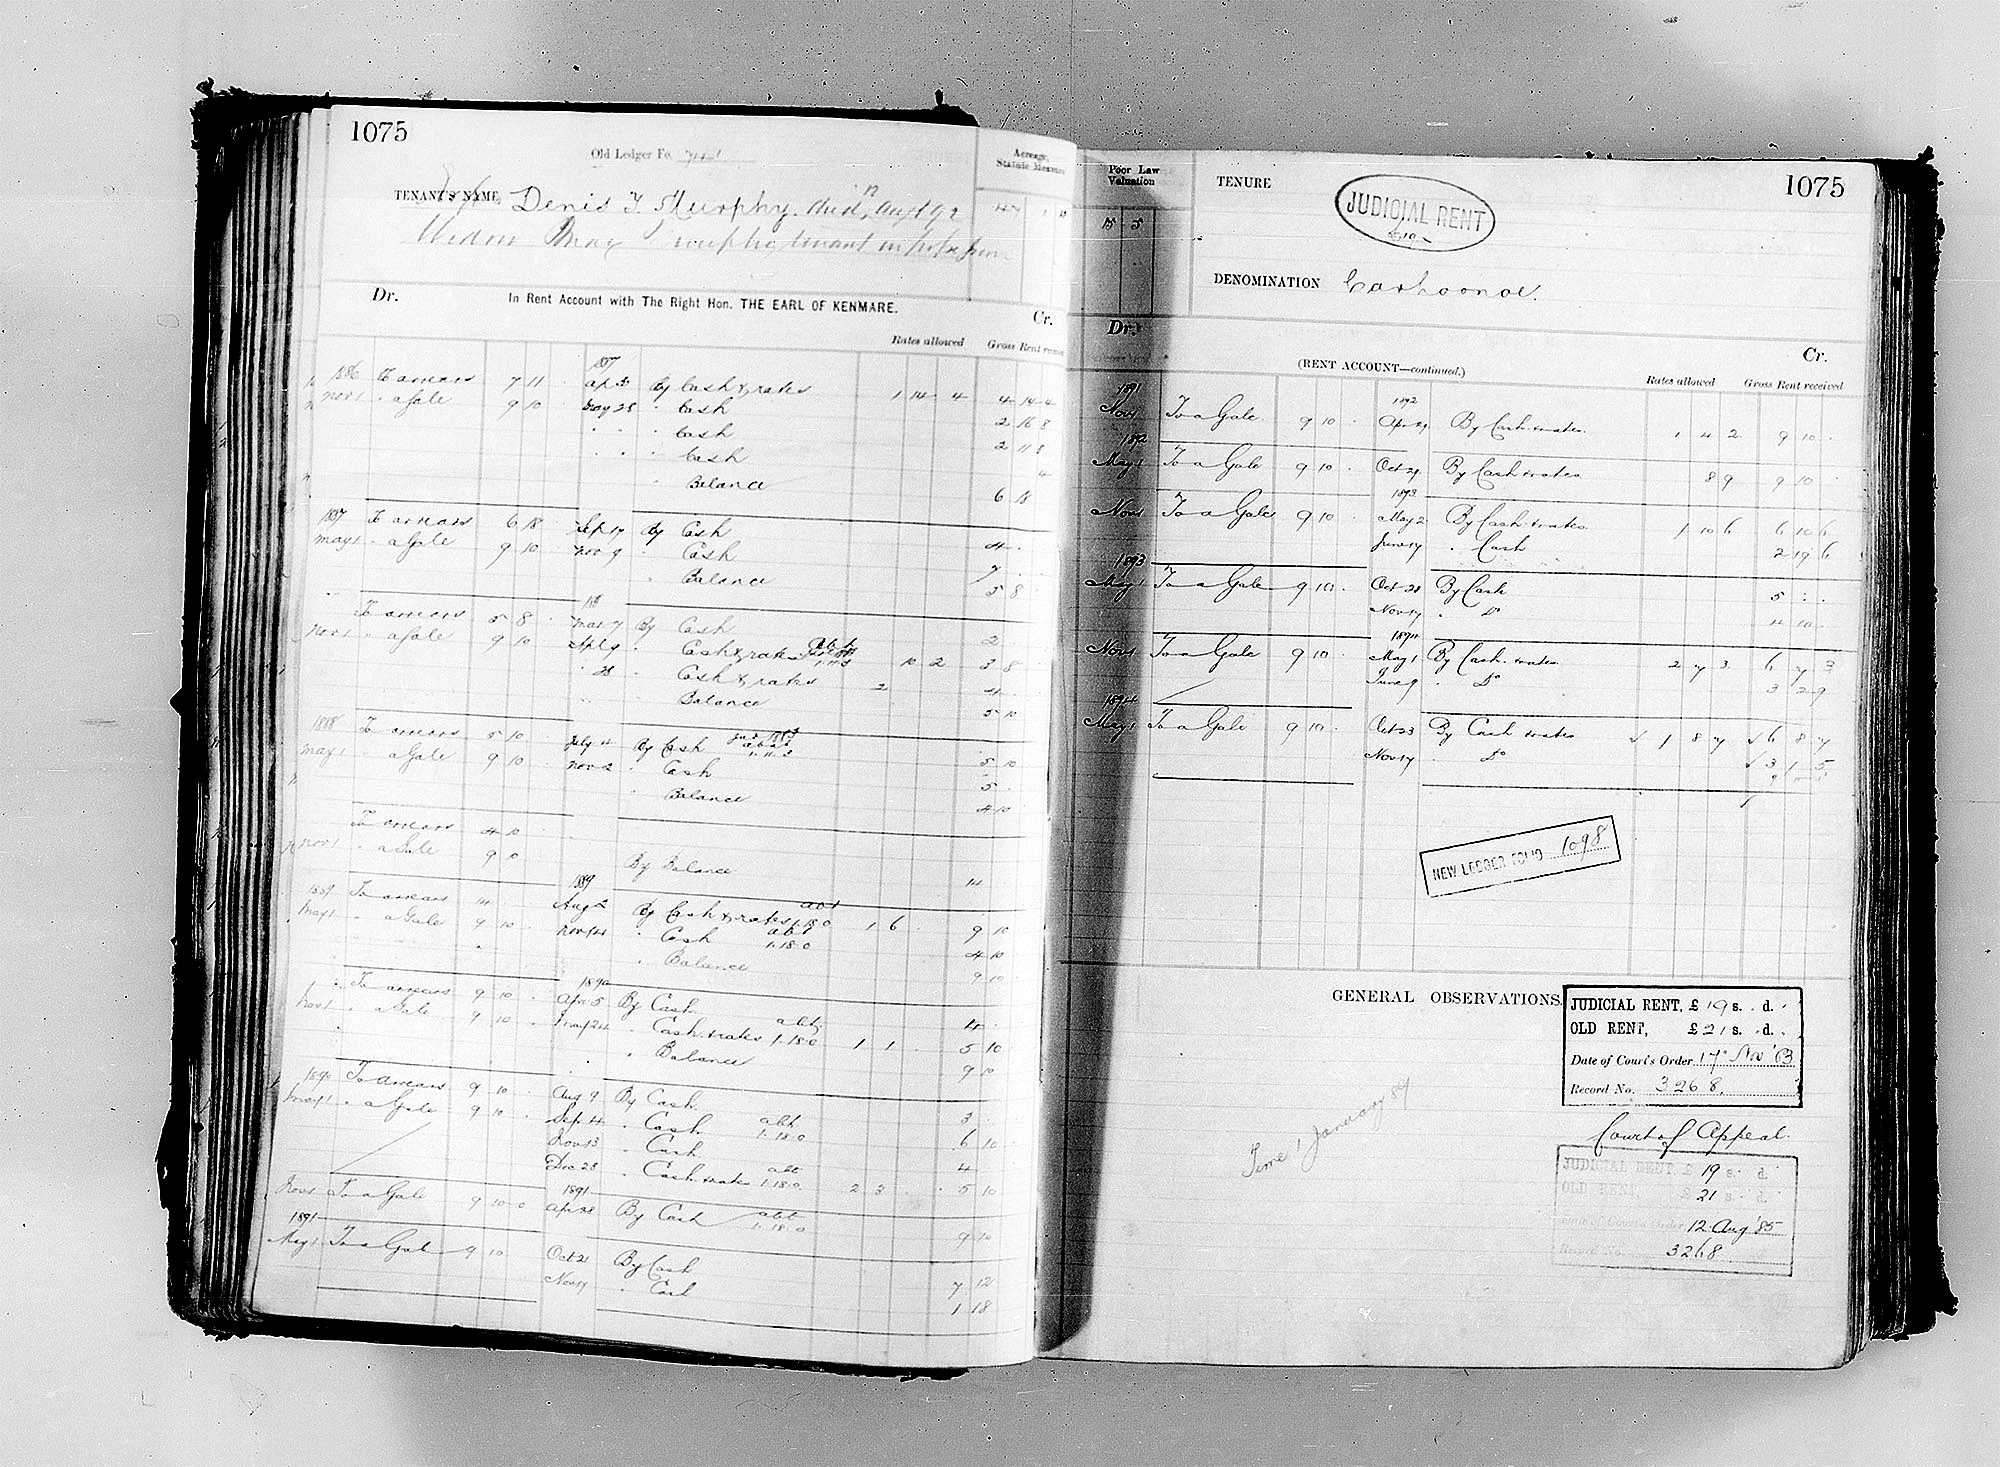 1075
Old Ledger Fo.
Acreage, Statute Measure
TENANT'S NAME Denis T. Murphy. died Augt 92
Widow Murphy, tenant in possession
Dr. In Rent Account with The Right Hon. THE EARL OF KENMARE. Cr.
Rates allowed Gross Rent
1887
1886 To arrears 7 11 Ap 30 By Cash & rates 1 14 4 4 14 4
Nov 1 " a Gale 9 10 May 28 " Cash 2 16 8
" " " Cash 2 11 8
" " " Cash 4
" Balance 6 18
1887 To arrears 6 18 Sep 17 By Cash 4
May 1 " a Gale 9 10 Nov 9 " Cash 7
" Balance 5 8
To arrears 5 8 Mar 7 By Cash 2
Nov 1 " a Gale 9 10 Apl 9 " Cash & rates 10 2 3 8
" 28 " Cash & rates 2 4
" Balance 5 10
1888 To arrears 5 10 July 4 By Cash 5 10
May 1 " a Gale 9 10 Nov 2 " Cash 5
" Balance 4 10
To arrears 4 10
Nov 1 " a Gale 9 10 By Balance 14
1889
1889 To arrears 14 Aug 2 By Cash & rates abt 1.18.0 1 6 9 10
May 1 " a Gale 9 10 Nov 14 " Cash abt 1.18.0 4 10
" Balance 9 10
1890
To arrears 9 10 Apr 5 By Cash 4
Nov 1 " a Gale 9 10 May 24 " Cash & rates abt 1.18.0 1 1 5 10
" Balance 9 10
1890 To arrears 9 10 Aug 9 By Cash 3
May 1 " a Gale 9 10 Sep 4 " Cash abt 1.18.0 6 10
Nov 13 " Cash 4
Dec 28 " Cash & rates abt 1.18.0 2 3 5 10
1891
Nov 1 To a Gale 9 10 0 Apr 28 By Cash abt 1.18.0 9 10
1891
May 1 To a Gale 9 10 Oct 21 By Cash 7 12
Nov 17 " Cash 1 18
Poor Law Valuation
TENURE
JUDICIAL RENT
1075
DENOMINATION Carhoonoe.
Dr. Cr.
(RENT ACCOUNT—continued.)
Rates allowed Gross Rent received
1891 1892
Nov 1 To a Gale 9 10 Apr 29 By Cash & rates 1 4 2 9 10
1892
May 1 To a Gale 9 10 Oct 21 By Cash & rates 8 9 9 10
1893
Nov 1 To a Gale 9 10 May 2 By Cash & rates 1 10 6 6 10 6
June 17 " Cash 2 19 6
1893
May 1 To a Gale 9 10 Oct 28 By Cash 5
Nov 17 " Do 4 10
1894
Nov 1 To a Gale 9 10 May 1 By Cash & rates 2 7 3 6 7 3
June 9 " Do 3 2 9
1894
May 1 To a Gale 9 10 Oct 23 By Cash & rates 1 8 7 6 8 7
Nov 17 " Do 3 1 5
NEW LEDGER FOLIO 1098
GENERAL OBSERVATIONS.
JUDICIAL RENT, £ 19 s. d.
OLD RENT, £ 21 s. d.
Date of Court's Order 17 Nov '83
Record No. 3268.
Time 1 January 89
Court of Appeal.
JUDICIAL RENT, £ 19 s. d.
OLD RENT, £ 21 s. d.
Date of Court's Order 12 Aug '85
Record No. 3268